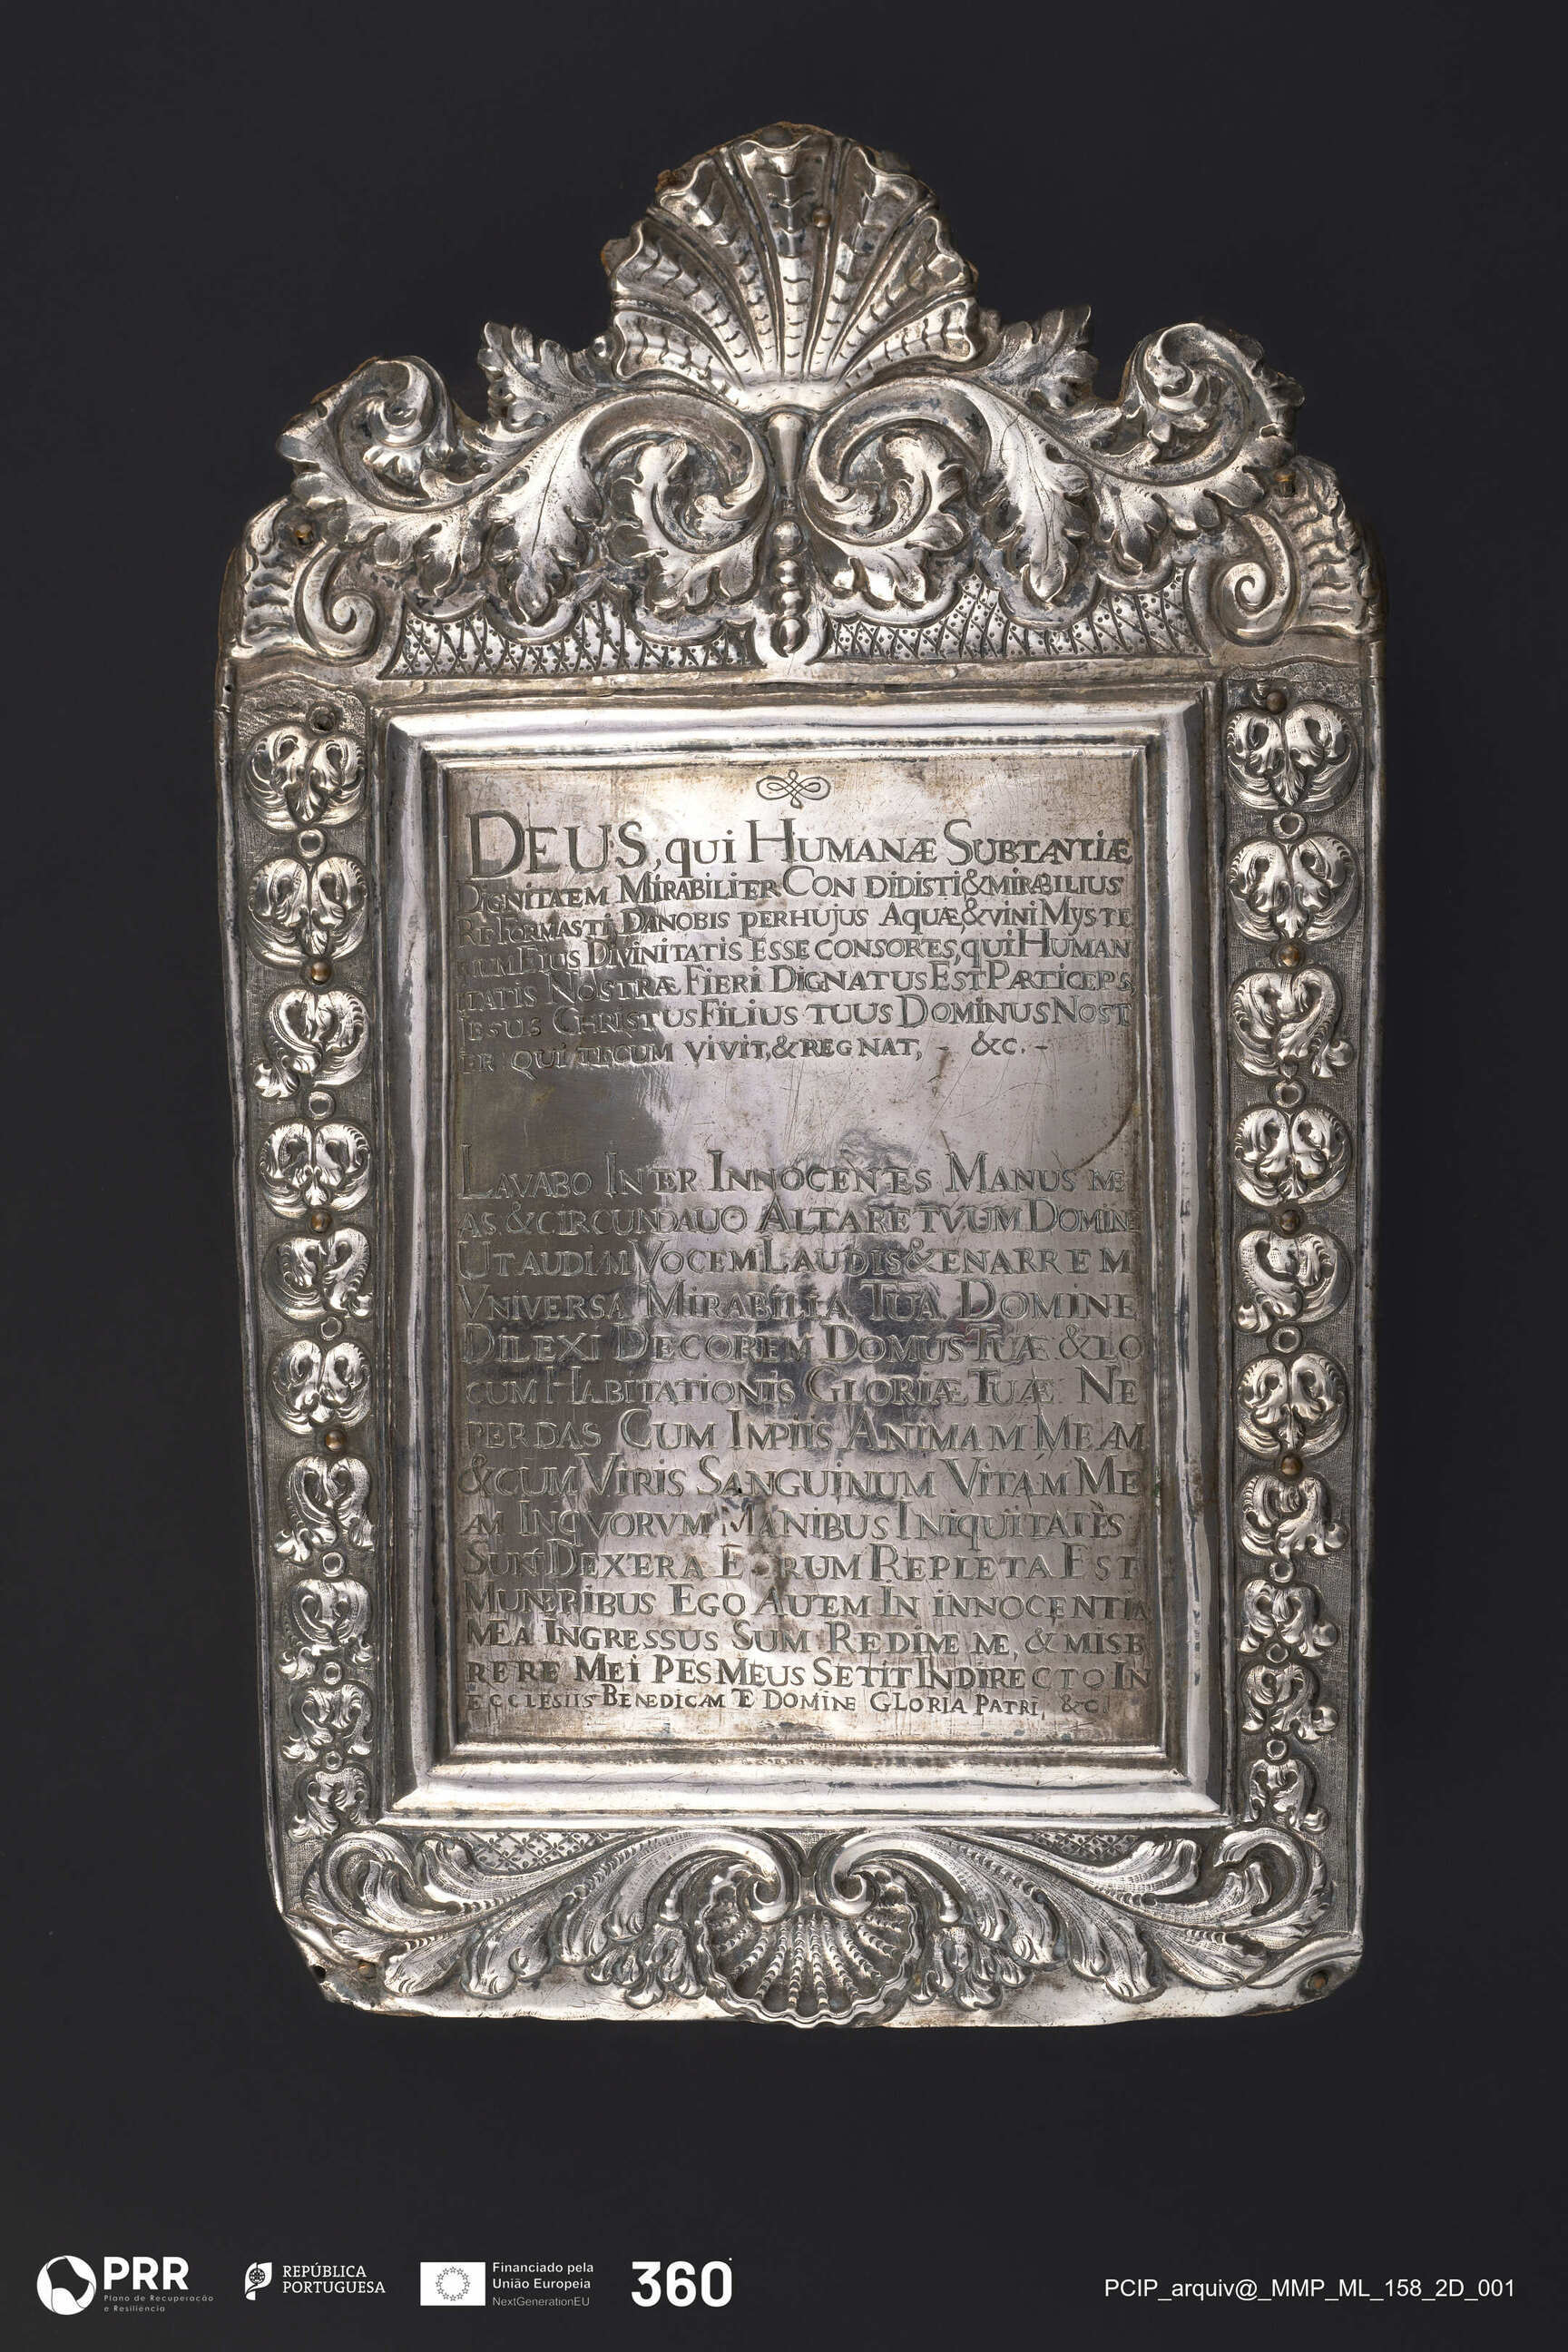 DEUS, qui HUMANÆ SUBTANTIÆ
DIGNITAEM MIRABILITER CON DIDISTI & MIRABILIUS
REFORMASTI DANOBIS PERHUJUS AQUÆ & VINI MYSTE
RIUM EJUS DIVINITATIS ESSE CONSORTES, qui HUMAN
ITATIS NOSTRÆ FIERI DIGNATUS EST PARTICEPS,
JESUS CHRISTUS FILIUS TUUS DOMINUS NOST
ER QUI TECUM VIVIT, & REGNAT, - &c. -
LAVABO INTER INNOCENTES MANUS ME
AS & CIRCUNDAUO ALTARE TVUM DOMINE
UT AUDIAM VOCEM LAUDIS & ENARREM
VNIVERSA MIRABILIA TUA DOMINE
DILEXI DECOREM DOMUS TUÆ & LO
CUM HABITATIONIS GLORIÆ TUÆ NE
PERDAS CUM IMPIIS ANIMAM MEAM
& CUM VIRIS SANGUINUM VITAM ME
AM INQVORVM MANIBUS INIQUITATÈS
SUNT DEXERA EORUM REPLETA EST
MUNERIBUS EGO AUTEM IN INNOCENTIA
MEA INGRESSUS SUM REDIME ME, & MISE
RERE MEI PES MEUS SETIT INDIRECTO IN
ECCLESIIS BENEDICAM TE DOMINE GLORIA PATRI, &c.
PRR
Plano de Recuperação
e Resiliência
REPÚBLICA
PORTUGUESA
Financiado pela
União Europeia
NextGenerationEU
360
PCIP_arquiv@_MMP_ML_158_2D_001